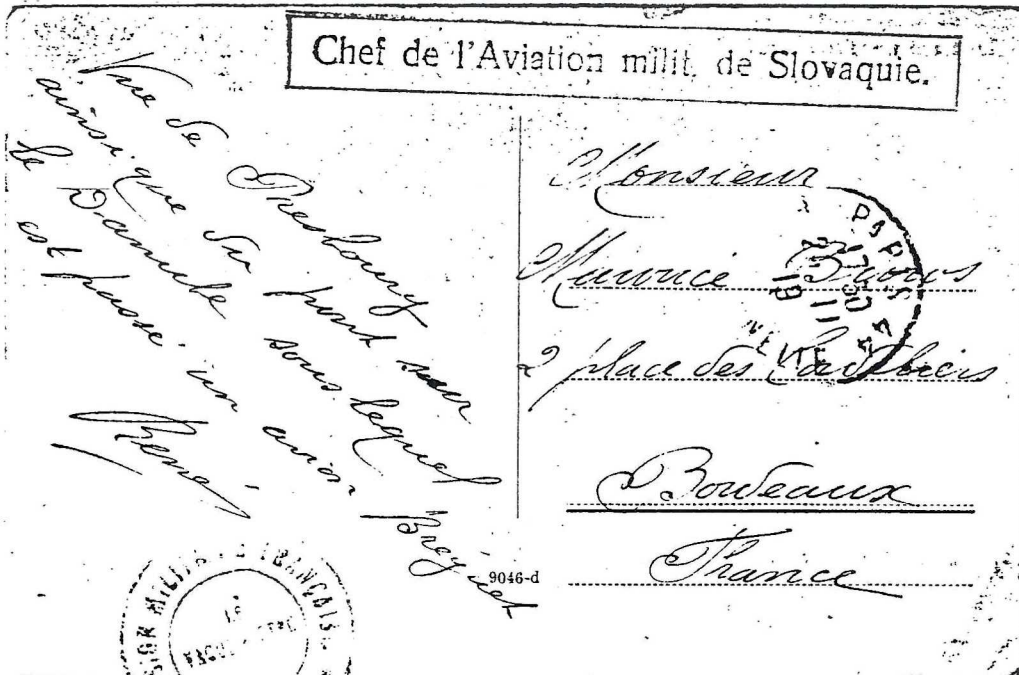 Chef de l'Aviation milit. de Slovaquie.
Vue de Presbourg
ainsi que du pont sur
le Danube sous lequel
est passé un avion Breguet
René
Monsieur
Maurice
2 place des
Bordeaux
France
9046-d
PARIS
FRANÇAISE